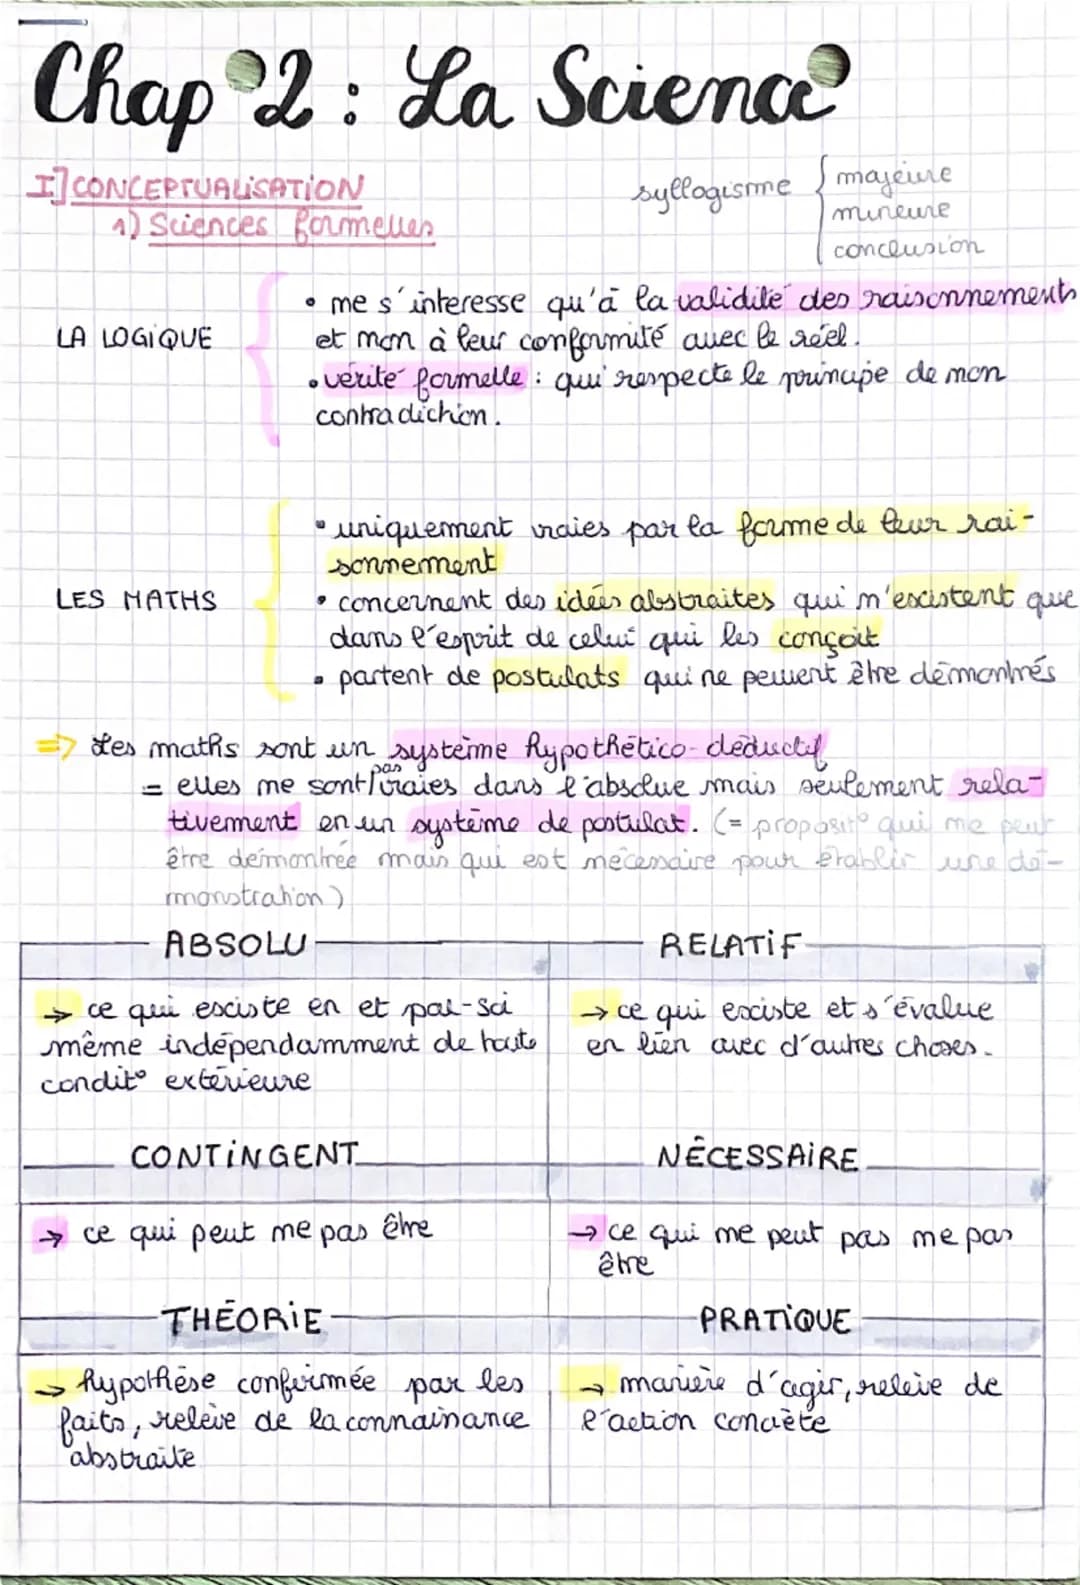 Chap 2 : La Science
I] CONCEPTUALISATION
1) Sciences formelles
syllogisme
majeure
mineure
conclusion
LA LOGIQUE
• ne s'interesse qu'à la validité des raisonnements
et non à leur conformité avec le réel.
• vérité formelle : qui respecte le principe de non
contradiction.
LES MATHS
• uniquement vraies par la forme de leur rai-
sonnement
• concernent des idées abstraites qui n'existent que
dans l'esprit de celui qui les conçoit
• partent de postulats qui ne peuvent être démontrés
=> Les maths sont un système hypothético-déductif
= elles ne sont pas vraies dans l'absolue mais seulement rela-
tivement en un système de postulat. (= propositº qui ne peut
être démontrée mais qui est nécessaire pour établir une dé-
monstration)
ABSOLU
RELATIF
→ ce qui existe en et par-soi
même indépendamment de toute
conditº extérieure
→ ce qui existe et s'évalue
en lien avec d'autres choses.
CONTINGENT
NÉCESSAIRE
→ ce qui peut ne pas être
→ ce qui ne peut pas ne pas
être
THÉORIE
PRATIQUE
→ hypothèse confirmée par les
faits, relève de la connaissance
abstraite
→ manière d'agir, relève de
l'action concrète